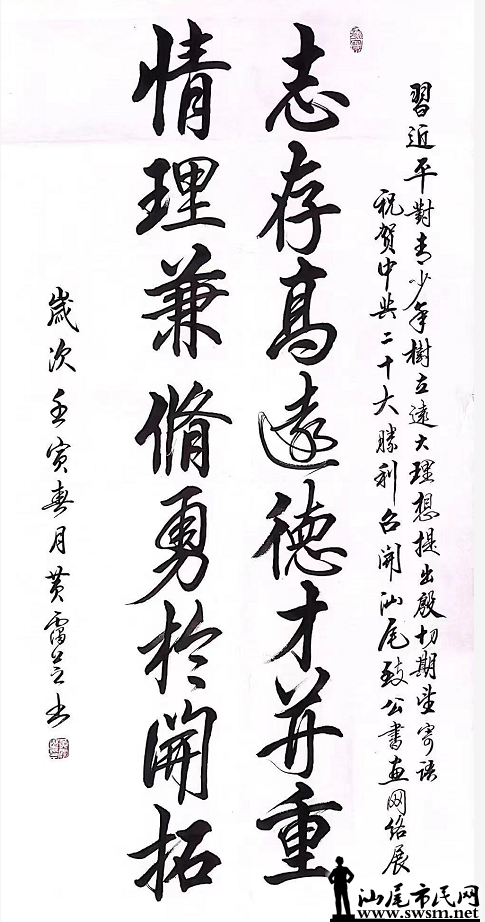 習近平對青少年樹立遠大理想提出殷切期望寄語
祝賀中共二十大勝利召開汕尾致公書畫网络展
志存高遠德才并重
情理兼脩勇於開拓
歲次壬寅春月黄雷芝书
汕尾市民网
www.swsm.net